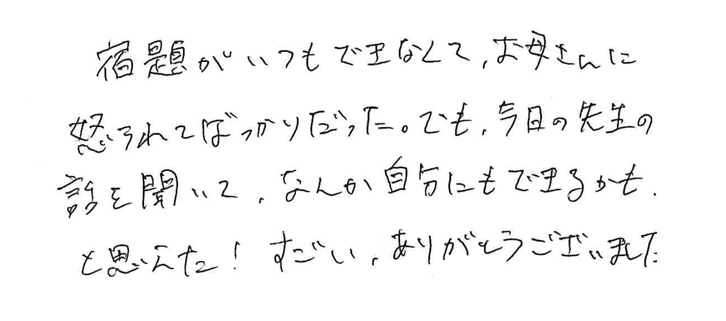 宿題がいつもできなくて、お母さんに
怒られてばっかりだった。でも、今日の先生の
話を聞いて、なんか自分にもできるかも、
と思えた！すごい、ありがとうございました